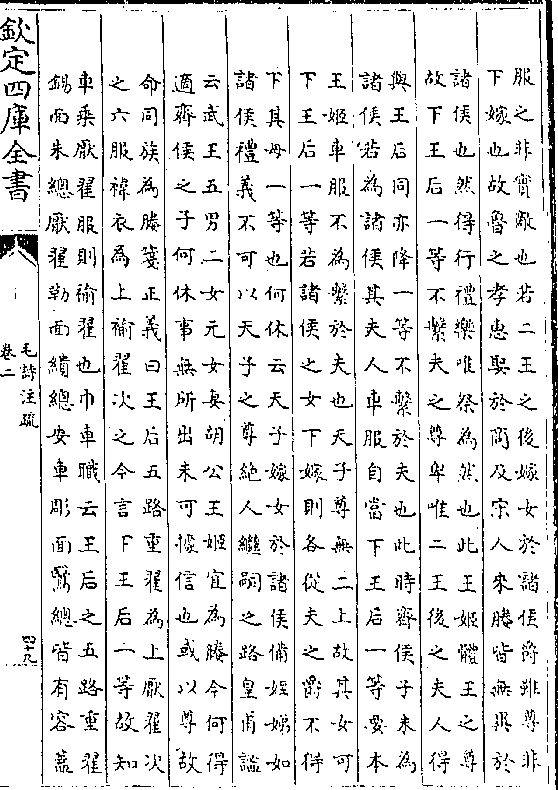 服之非實敵也若二王之後嫁女於諸侯爵雖尊非
下嫁也故魯之孝惠娶於商及宋人來媵皆無異於
諸侯也然得行禮樂唯祭為然也此王姬體王之尊
故下王后一等不繫夫之尊卑唯二王後之夫人得
與王后同亦降一等不繫於夫也此時齊侯子未為
諸侯若為諸侯其夫人車服自當下王后一等要本
王姬車服不為繫於夫也天子尊無二上故其女可
下王后一等若諸侯之女下嫁則各從夫之爵不得
下其母一等也何休云天子嫁女於諸侯備姪娣如
諸侯禮義不可以天子之尊絶人繼嗣之路皇甫謐
云武王五男二女元女妻胡公王姬宜為媵今何得
適齊侯之子何休事無所出未可據信也或以尊故
命同族為媵箋正義曰王后五路重翟為上厭翟次
之六服褘衣為上褕翟次之今言下王后一等故知
車乘厭翟服則褕翟也巾車職云王后之五路重翟
錫面朱總厭翟勒面繢總安車彫面鷖總皆有容蓋
欽定四庫全書
毛詩注疏
卷二
四十九